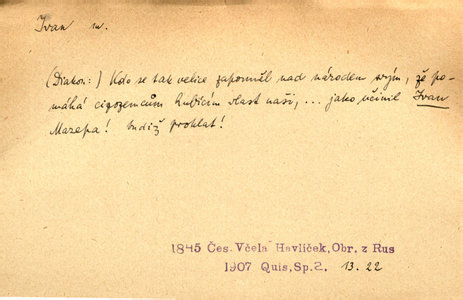 Ivan m.
(Diakon:) Kdo se tak velice zapomněl nad národem svým, že po-
máhá cizozemcům hubícím vlast naši, ... jako učinil Ivan
Mazepa! budiž proklat!
1845 Čes. Včela Havlíček, Obr. z Rus
1907 Quis, Sp. 2. 13.22